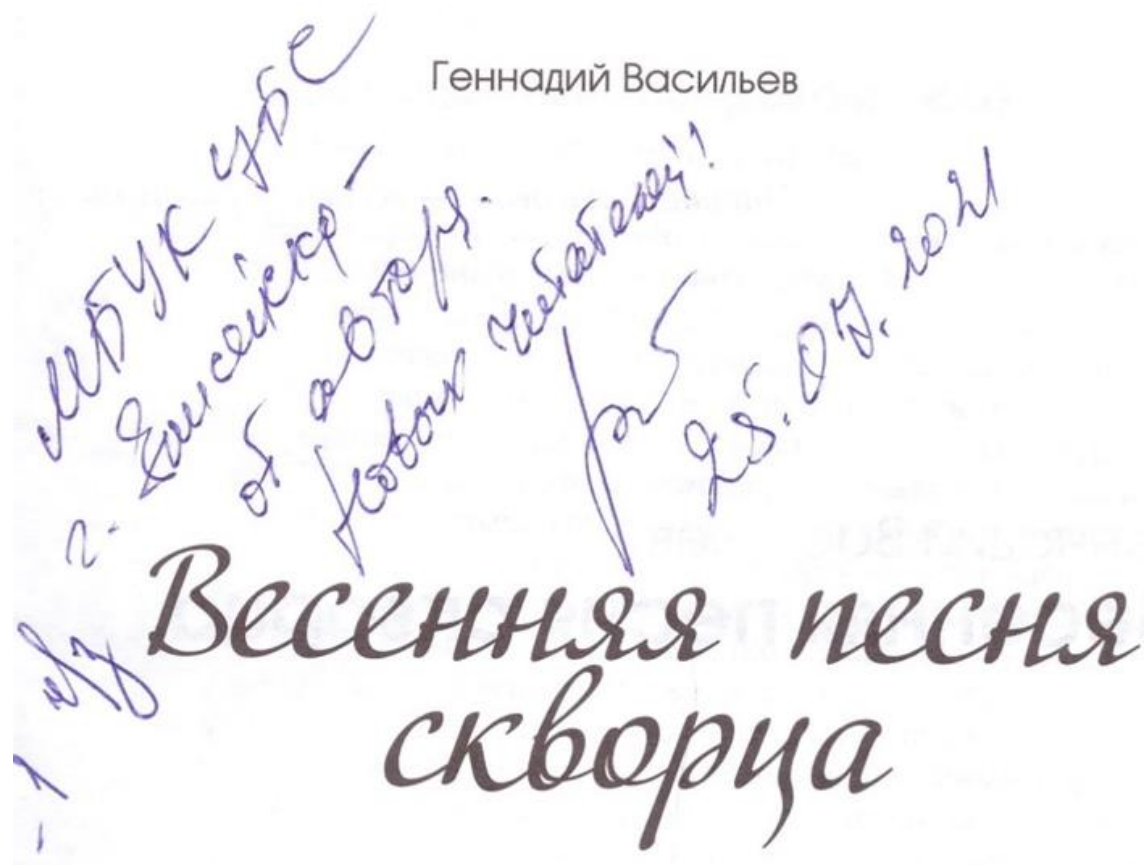 Геннадий Васильев
МБУК ЦБС
г. Енисейска -
от автора.
Новых читателей!
25.07.2021
Весенняя песня
скворца
- 1 экз